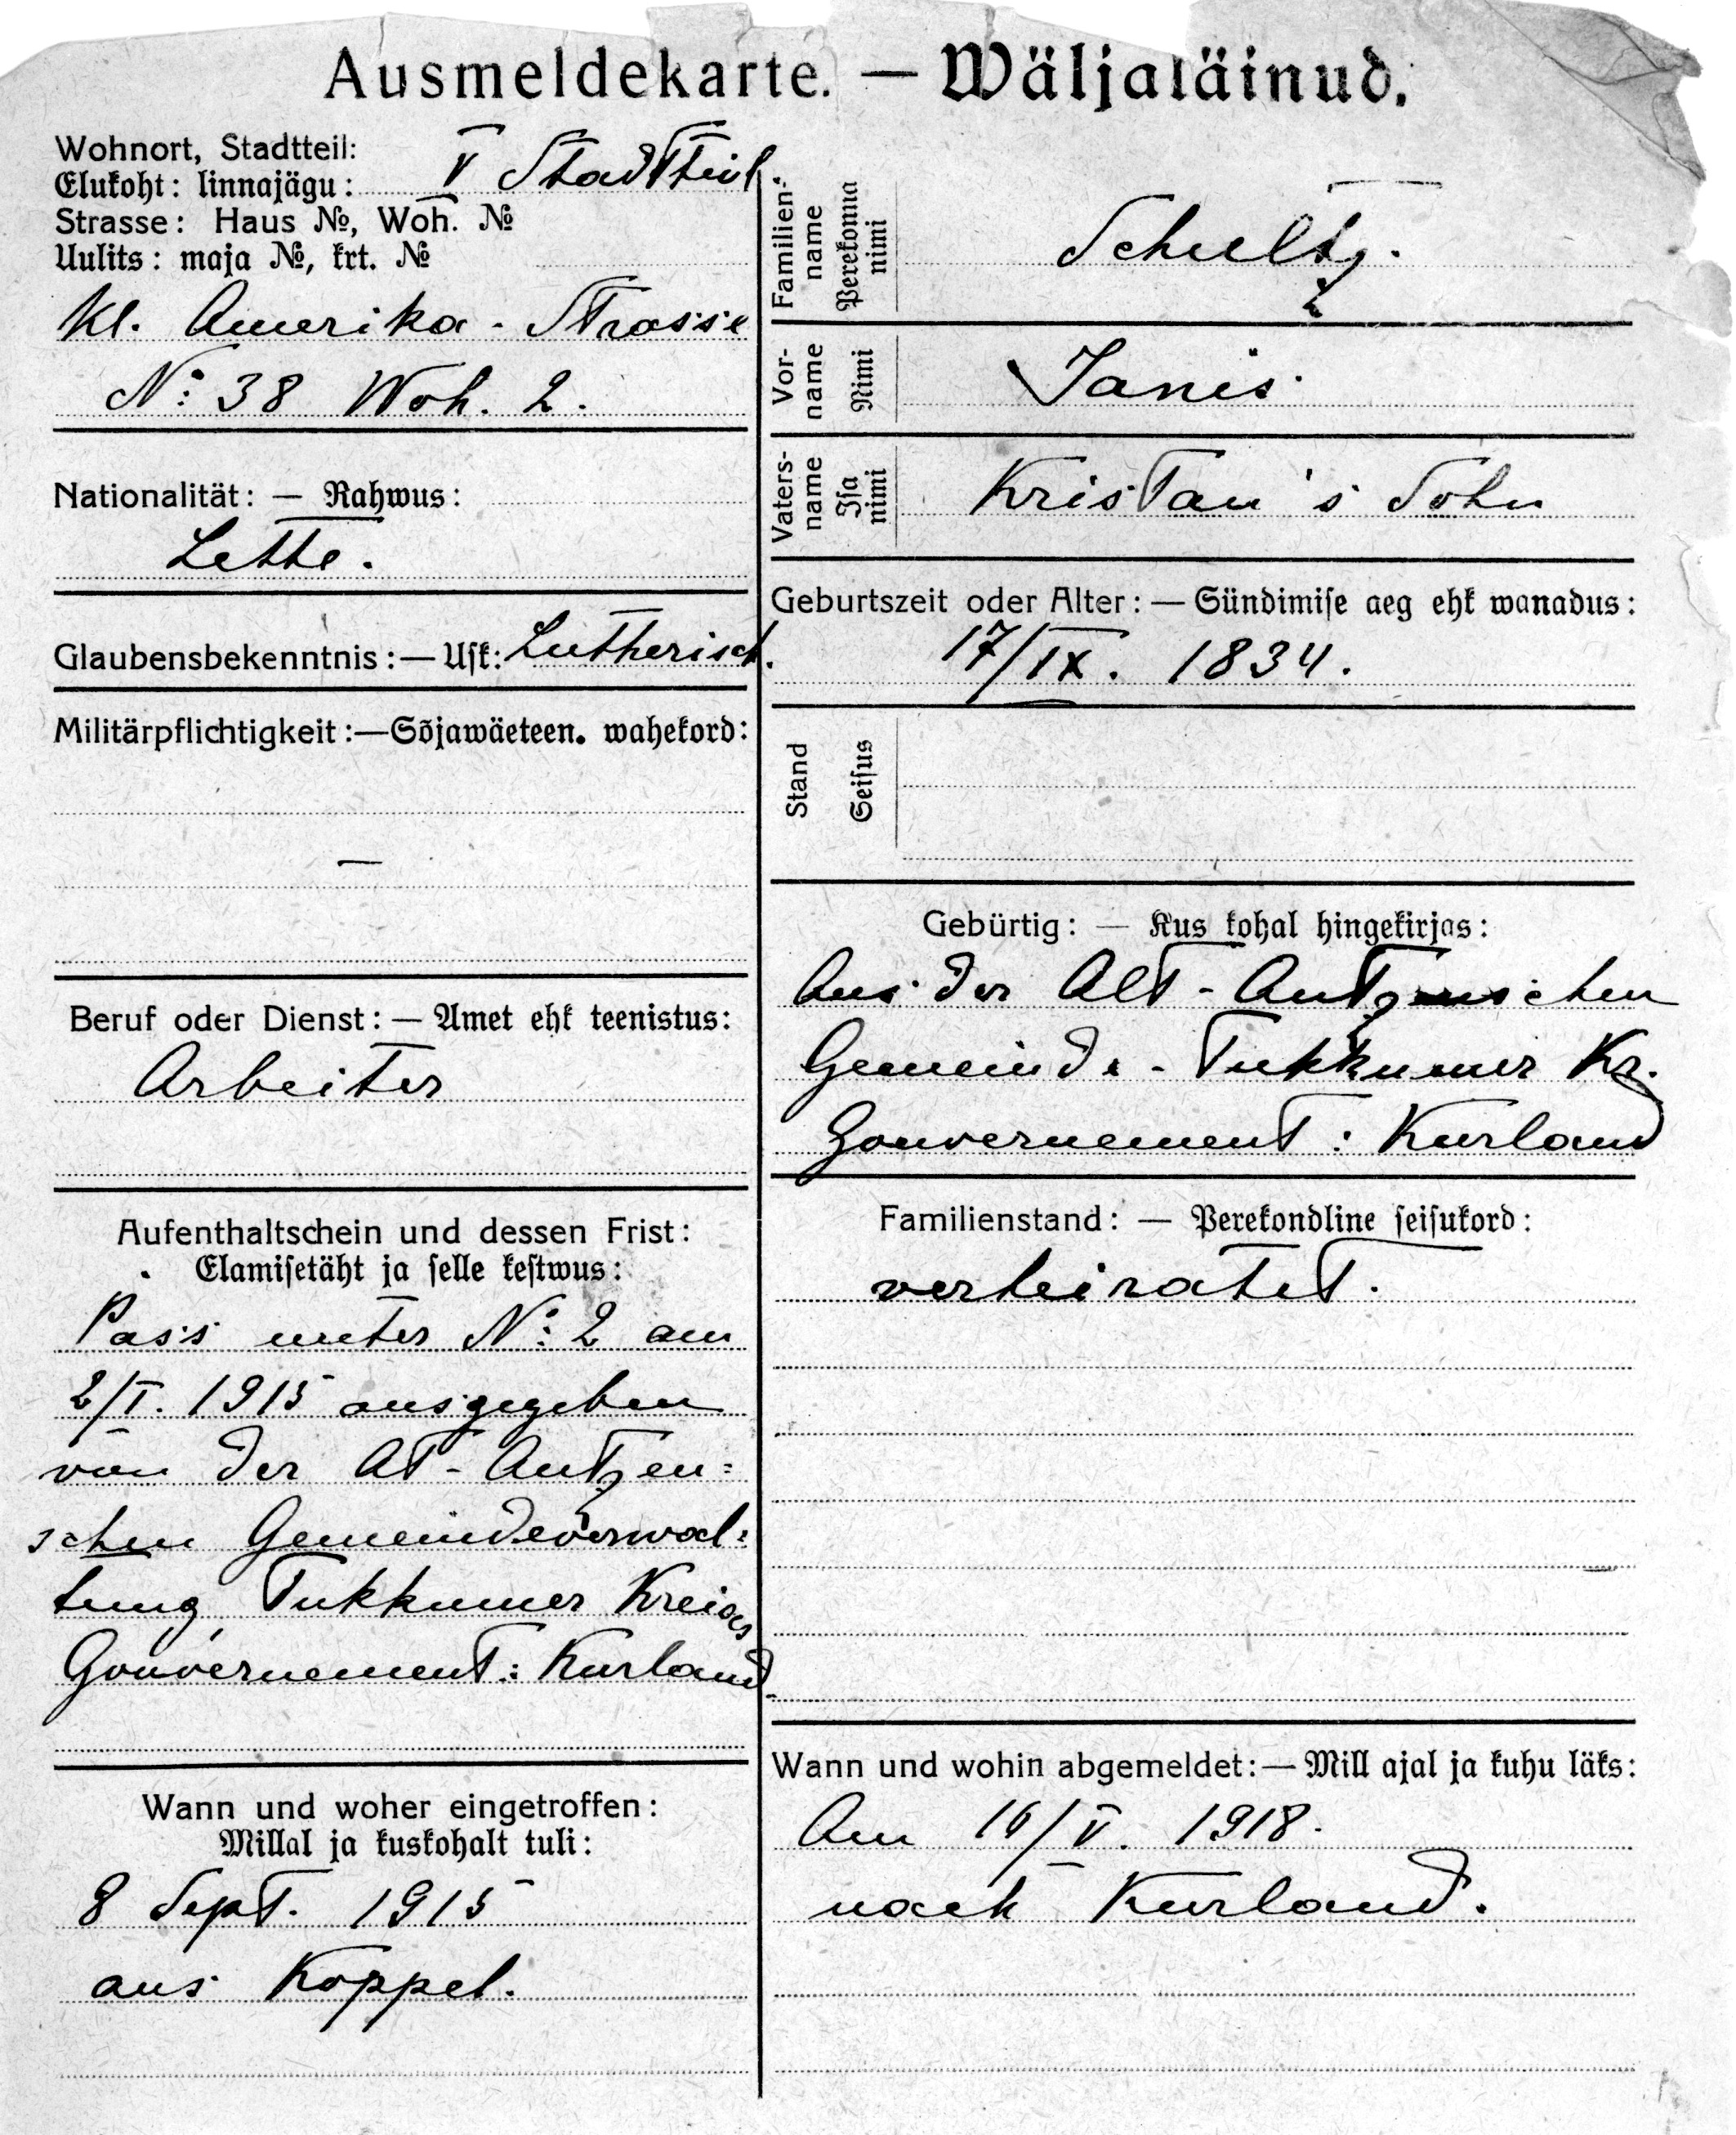 Ausmeldekarte. — Wäljaläinud.
Wohnort, Stadtteil:
Elukoht: linnajägu: V Stadtteil.
Strasse: Haus №, Woh. №
Uulits: maja №, krt. №
Kl. Amerika - Strasse
№: 38 Woh. 2.
Nationalität: — Rahwus:
Lette.
Glaubensbekenntnis: — Usk: Lutherisch.
Militärpflichtigkeit: — Sõjawäeteen. wahekord:
—
Beruf oder Dienst: — Amet ehk teenistus:
Arbeiter
Aufenthaltschein und dessen Frist:
Elamisetäht ja selle kestwus:
Pass unter №: 2 am
2/I. 1915 ausgegeben
von der At - Autzen=
schen Gemeindeverwal=
tung, Tukkumer Kreises
Gouvernement: Kurland
Wann und woher eingetroffen:
Millal ja kuskohalt tuli:
8 Sept. 1915
aus Koppel.
Familien-
name
Perekonna
nimi
Schultz.
Vor-
name
Nimi
Janis
Vaters-
name
Isa
nimi
Kristan's Sohn
Geburtszeit oder Alter: — Sündimise aeg ehk wanadus:
17/IX. 1834.
Stand
Seisus
Gebürtig: — Kus kohal hingekirjas:
Aus der Alt - Autzenschen
Gemeinde - Tukkumer Kr.
Gouvernement: Kurland
Familienstand: — Perekondline seisukord:
verheiratet.
Wann und wohin abgemeldet: — Mill ajal ja kuhu läks:
Am 16/V. 1918.
nach Kurland.